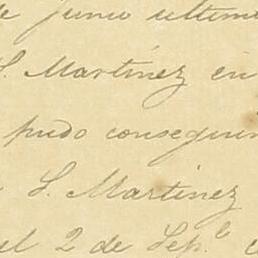 de junio ultimo
S. Martinez en
pudo conseguir
S. Martinez
el 2 de Sep.e